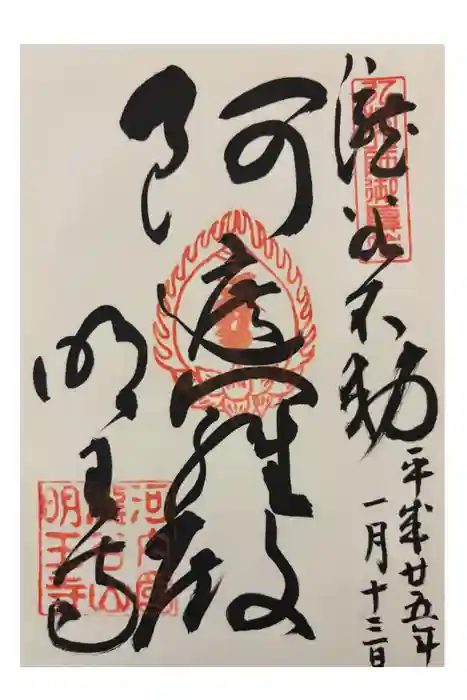 瀧谷不動
平成廿五年
一月十三日
阿遮羅殿
明王寺
河内國
瀧谷山
明王寺